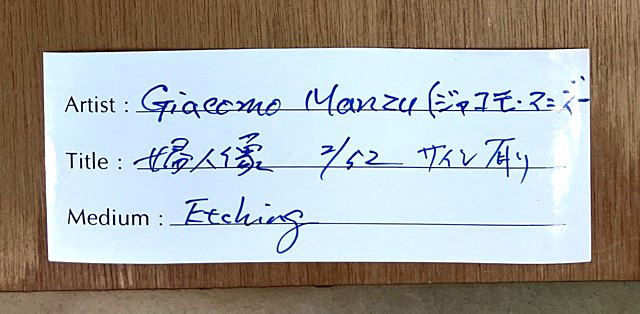 Artist : Giacomo Manzu (ジャコモ・マンズー
Title : 婦人像 2/52 サイン有り
Medium : Etching